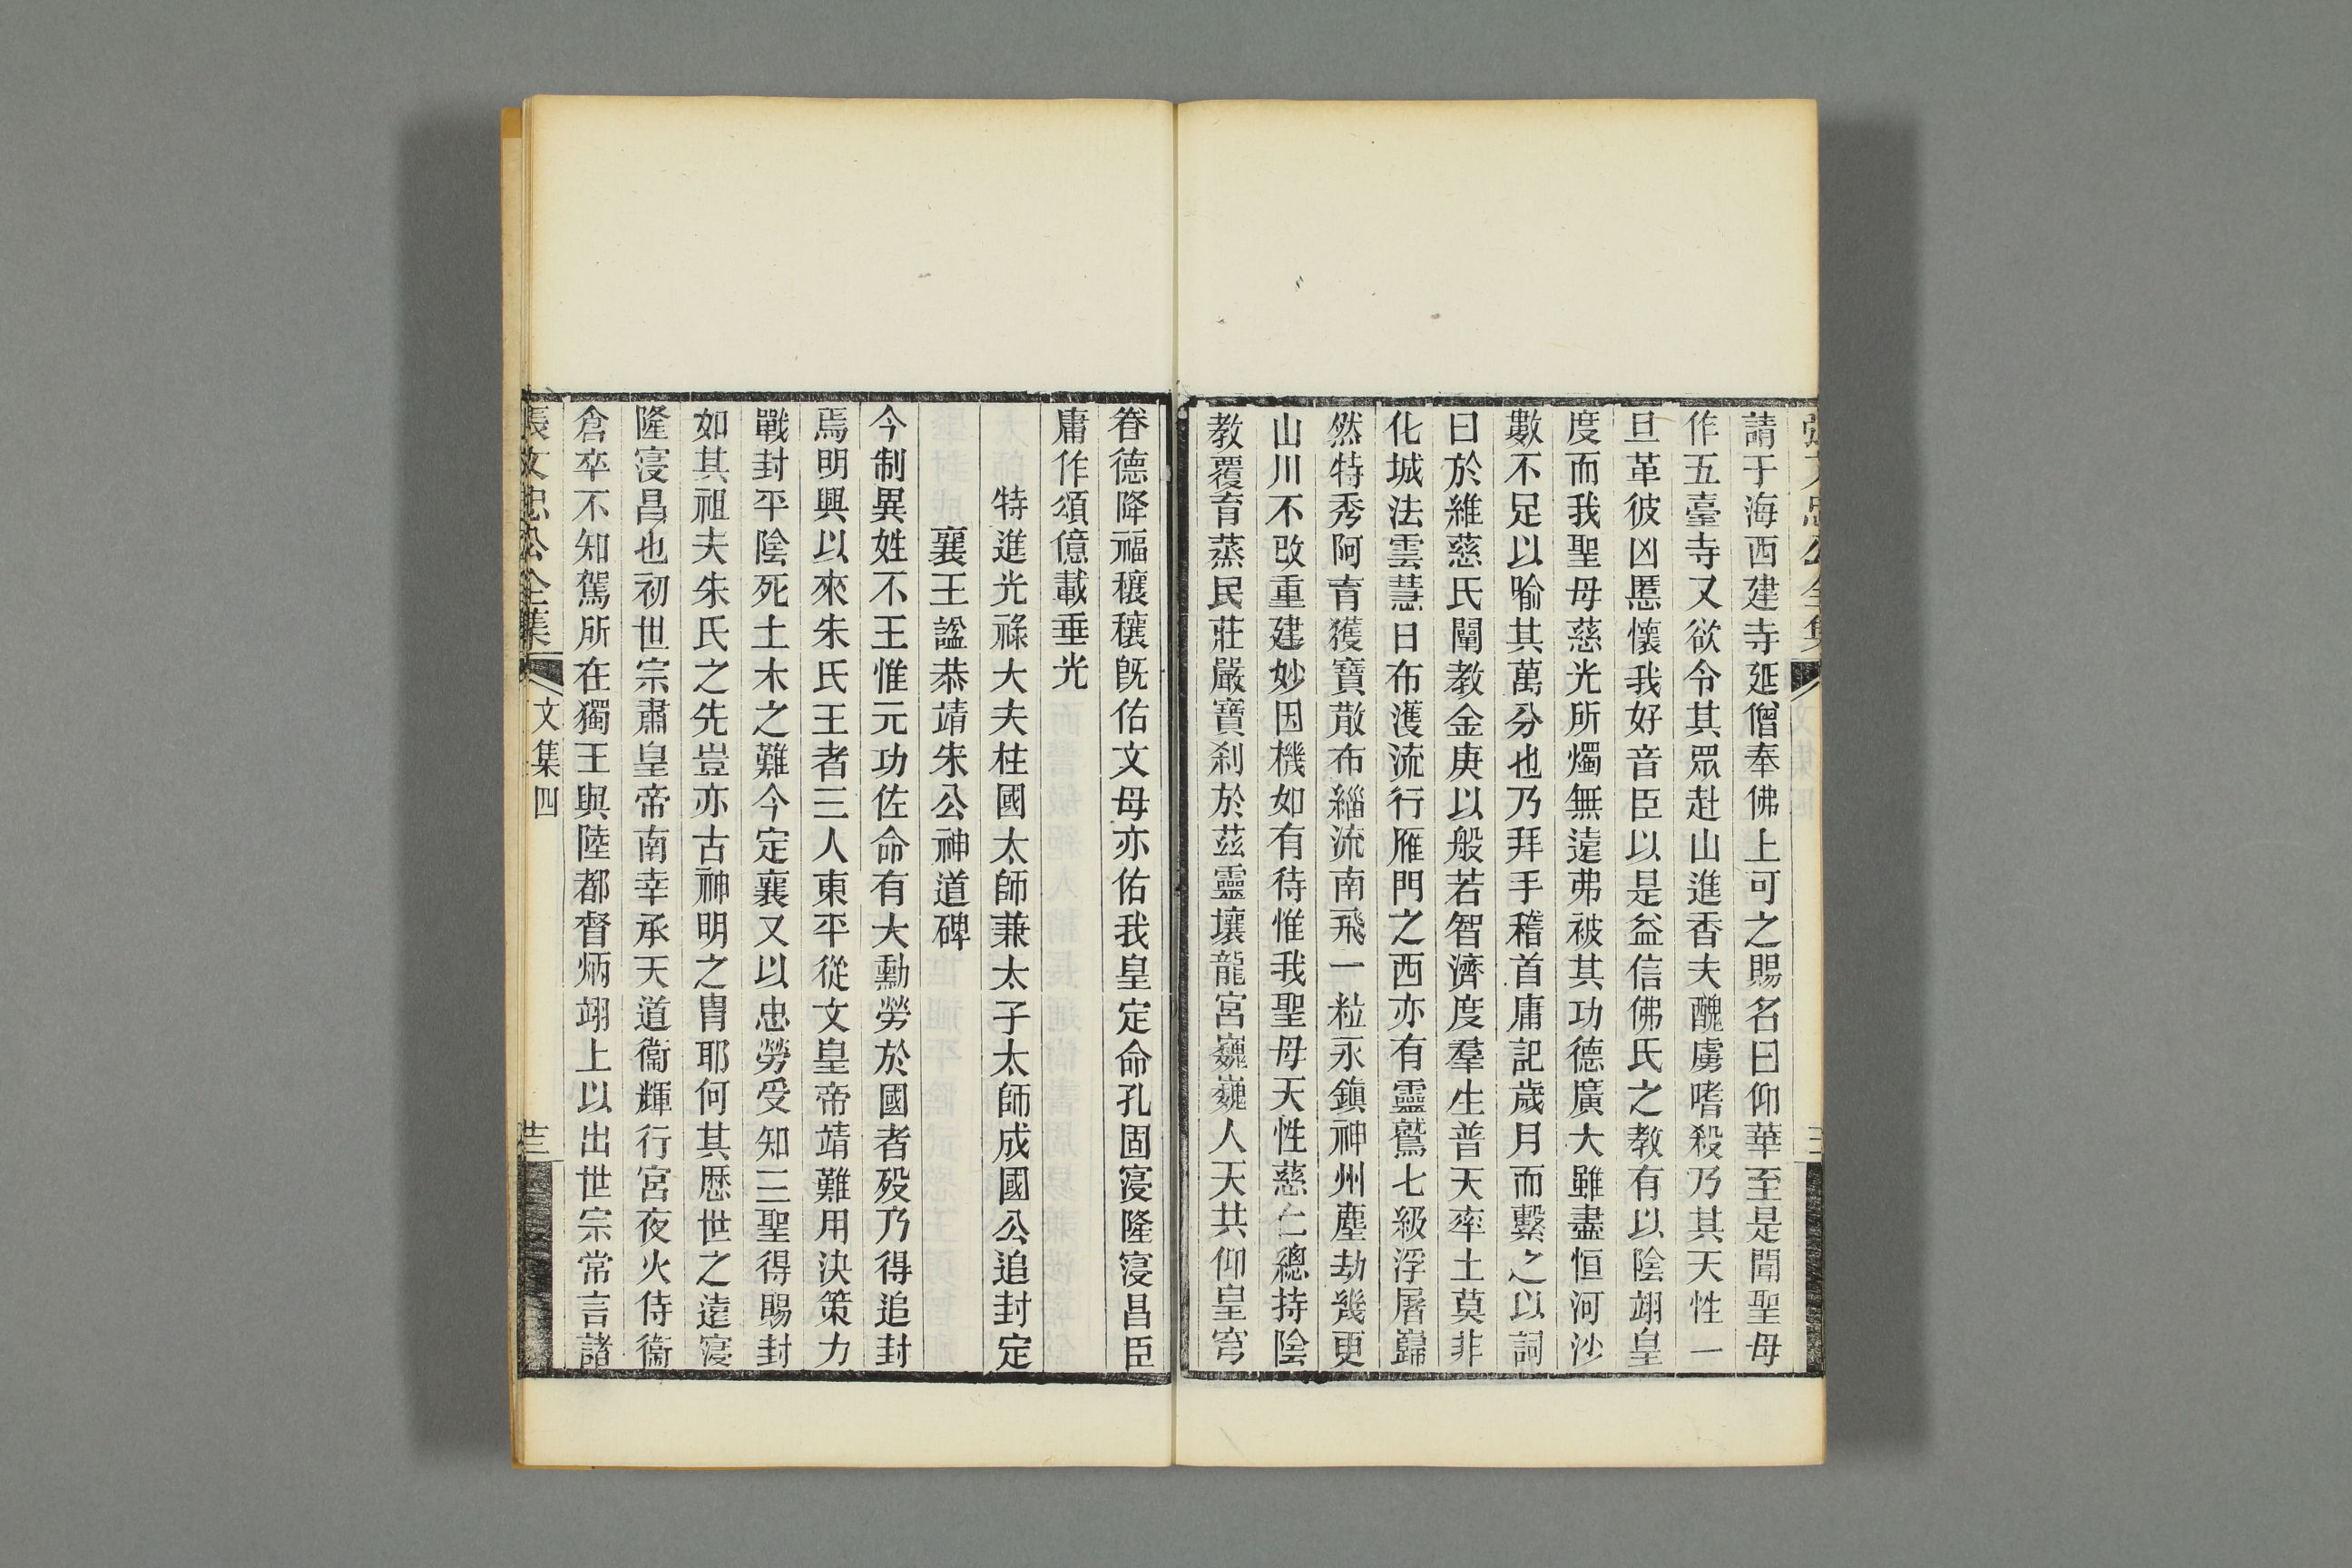 請于海西建寺延僧奉佛上可之賜名曰仰華至是聞聖母
作五臺寺又欲令其眾赴山進香夫醜虜嗜殺乃其天性一
旦革彼凶慝懷我好音臣以是益信佛氏之教有以陰翊皇
度而我聖母慈光所燭無遠弗被其功德廣大雖盡恒河沙
數不足以喻其萬分也乃拜手稽首庸記歲月而繫之以詞
曰於維慈氏闡教金庚以般若智濟度羣生普天率土莫非
化城法雲慧日布濩流行雁門之西亦有靈鷲七級浮屠巋
然特秀阿育獲寶散布緇流南飛一粒永鎮神州塵劫幾更
山川不改重建妙因機如有待惟我聖母天性慈仁總持陰
教覆育蒸民莊嚴寶刹於茲靈壤龍宮巍巍人天共仰皇穹
眷德降福穰穰既佑文母亦佑我皇定命孔固寖隆寖昌臣
庸作頌億載垂光
特進光祿大夫柱國太師兼太子太師成國公追封定
襄王諡恭靖朱公神道碑
今制異姓不王惟元功佐命有大勳勞於國者歿乃得追封
焉明興以來朱氏王者三人東平從文皇帝靖難用決策力
戰封平陰死土木之難今定襄又以忠勞受知三聖得賜封
如其祖夫朱氏之先豈亦古神明之胄耶何其歷世之遠寖
隆寖昌也初世宗肅皇帝南幸承天道衞輝行宮夜火侍衞
倉卒不知駕所在獨王與陸都督炳翊上以出世宗常言諸
張文忠公全集 文集四 卄三